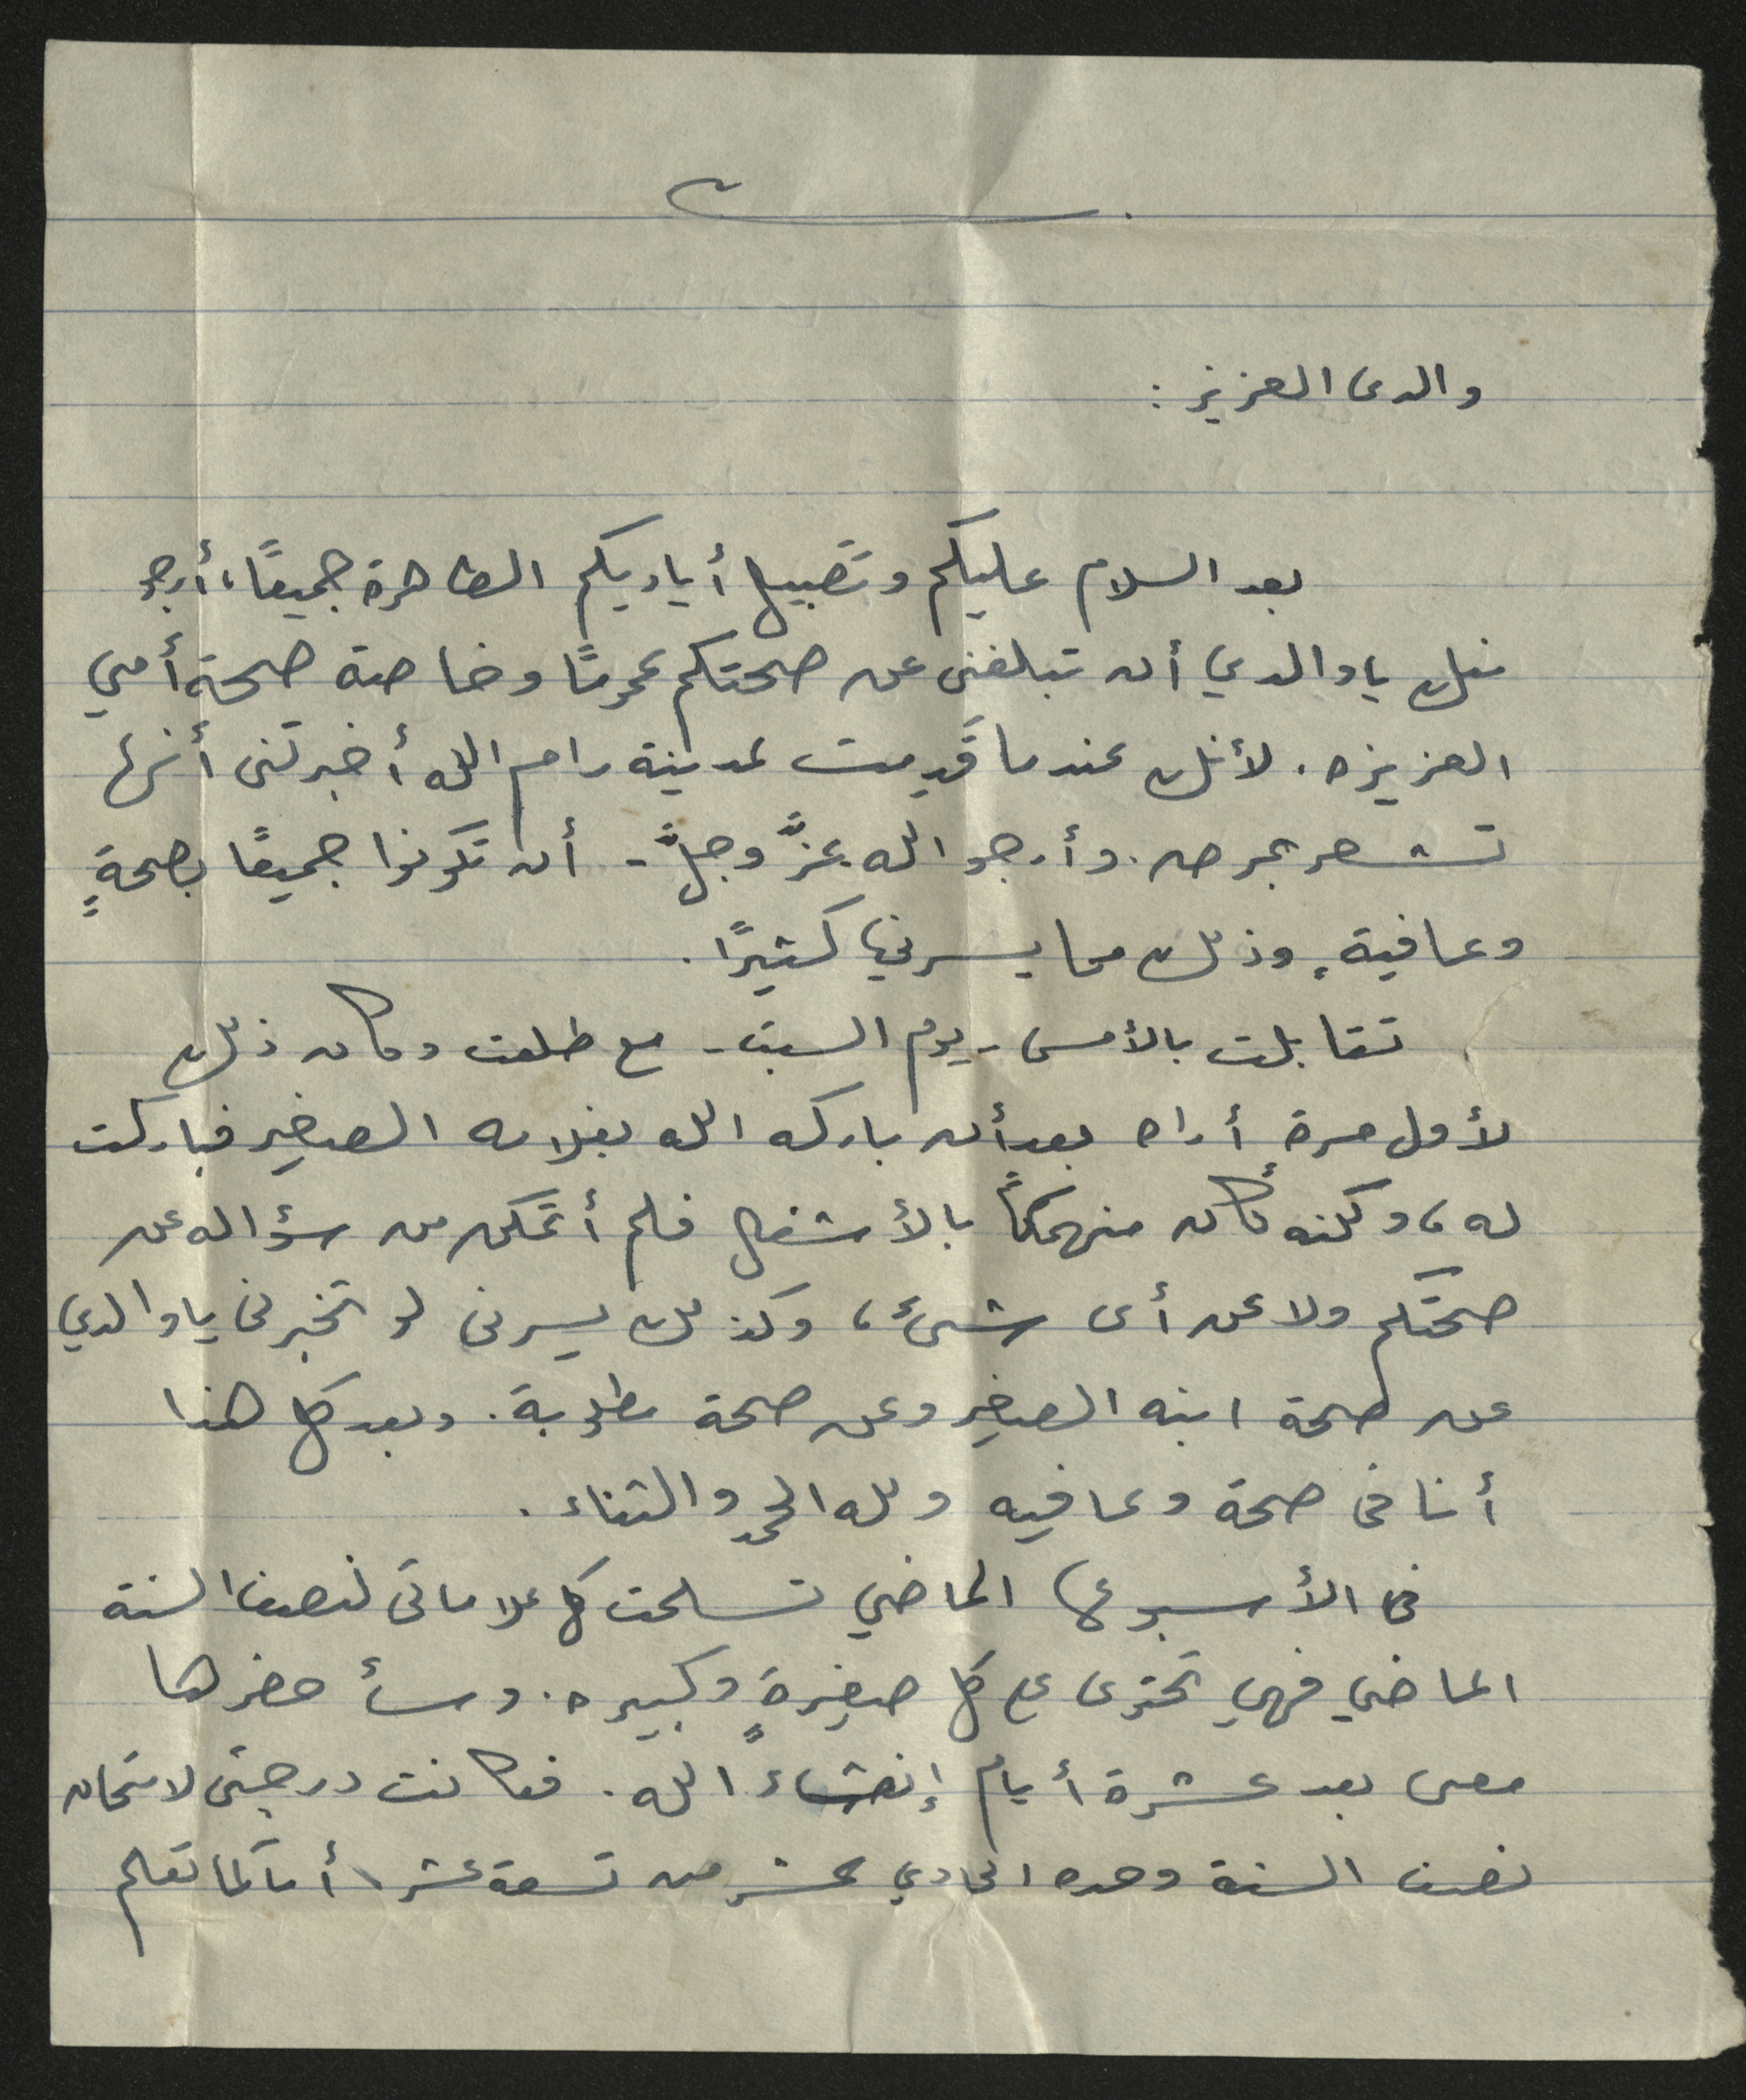 والدى العزيز :
بعد السلام عليكم وتقبيل أياديكم الطاهرة جميعًا، أرجو
منك يا والدي أن تبلغنى عن صحتكم عمومًا وخاصة صحة أمي
العزيزه . لأنك عندما قَدِمت لمدينة رام الله أخبرتنى أنها
تشعر بمرض . وأرجو الله - عزَّ وجلَّ - أن تكونوا جميعًا بصحةٍ
وعافيةٍ وذلك مما يسرني كثيرًا .
تقابلت بالأمس - يوم السبت - مع طلعت وكان ذلك
لأول مرة أراه بعد أن باركه الله بغلامه الصغير فباركت
له، ولكنه كان منهمكاً بالأشغال فلم أتمكن من سؤاله عن
صحتكم ولا عن أى شئ، وكذلك يسرنى لو تخبرنى يا والدي
عن صحة ابنه الصغير وعن صحة مطلوبة . وبعد كل هذا
أنا فى صحة وعافيه ولله الحمد والثناء .
فى الأسبوع الماضي تسلمت كل علاماتى لنصف السنة
الماضي فهي تحتوى على كل صغيرةٍ وكبيره . وسأحضرها
معى بعد عشرة أيام إنشاء الله . فكانت درجتى لامتحان
نصف السنة وحده الحادي عشر من تسعة عشر، أما كما تعلم